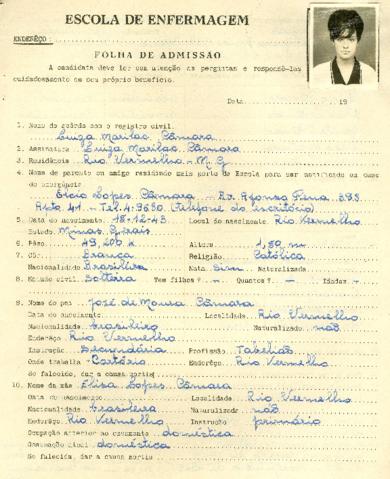 ESCOLA DE ENFERMAGEM
ENDERÊÇO:
FOLHA DE ADMISSÃO
A candidata deve ler com atenção as perguntas e respondê-las
cuidadosamente em seu próprio benefício.
Data 19
1. Nome de acôrdo com o registro civil.
Luiza Marilac Câmara
2. Assinatura Luiza Marilac Câmara
3. Residência Rio Vermelho - M.G
4. Nome de parente ou amigo residindo mais perto da Escola para ser notificado em caso
de emergência
Lopes Câmara - Av. Afonso Pena. 393
Apto 41 - Tel. 4.9650. (Telefone do escritório)
5. Data do nascimento 18-12-43 Local do nascimento Rio Vermelho
Estado Minas Gerais
6. Pêso 49,200 k Altura 1,50 m
7. Côr Branca Religião Católica
Nacionalidade Brasileira Nata Sim Naturalizada
8. Estado civil Solteira Tem filhos? - Quantos? - Idades -
9. Nome do pai José de Moura Câmara
Data do nascimento Localidade Rio Vermelho
Nacionalidade brasileiro Naturalizado não
Enderêço Rio Vermelho
Instrução Secundária Profissão Tabelião
Onde trabalha Cartório Enderêço Rio Vermelho
Se falecido, dar a causa mortis
10. Nome da mãe Elisa Lopes Câmara
Data do nascimento Localidade Rio Vermelho
Nacionalidade brasileira Naturalizada não
Enderêço Rio Vermelho Instrução primário
Ocupação anterior ao casamento doméstica
Ocupação atual doméstica
Se falecida, dar a causa mortis